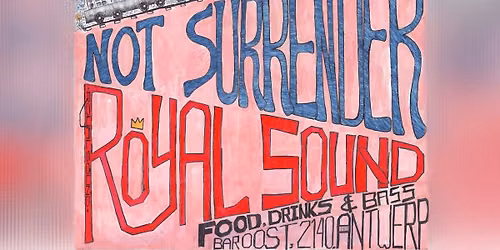 NOT SURRENDER
ROYAL SOUND
FOOD, DRINKS & BASS
BAR OOST, 2140, ANTWERP